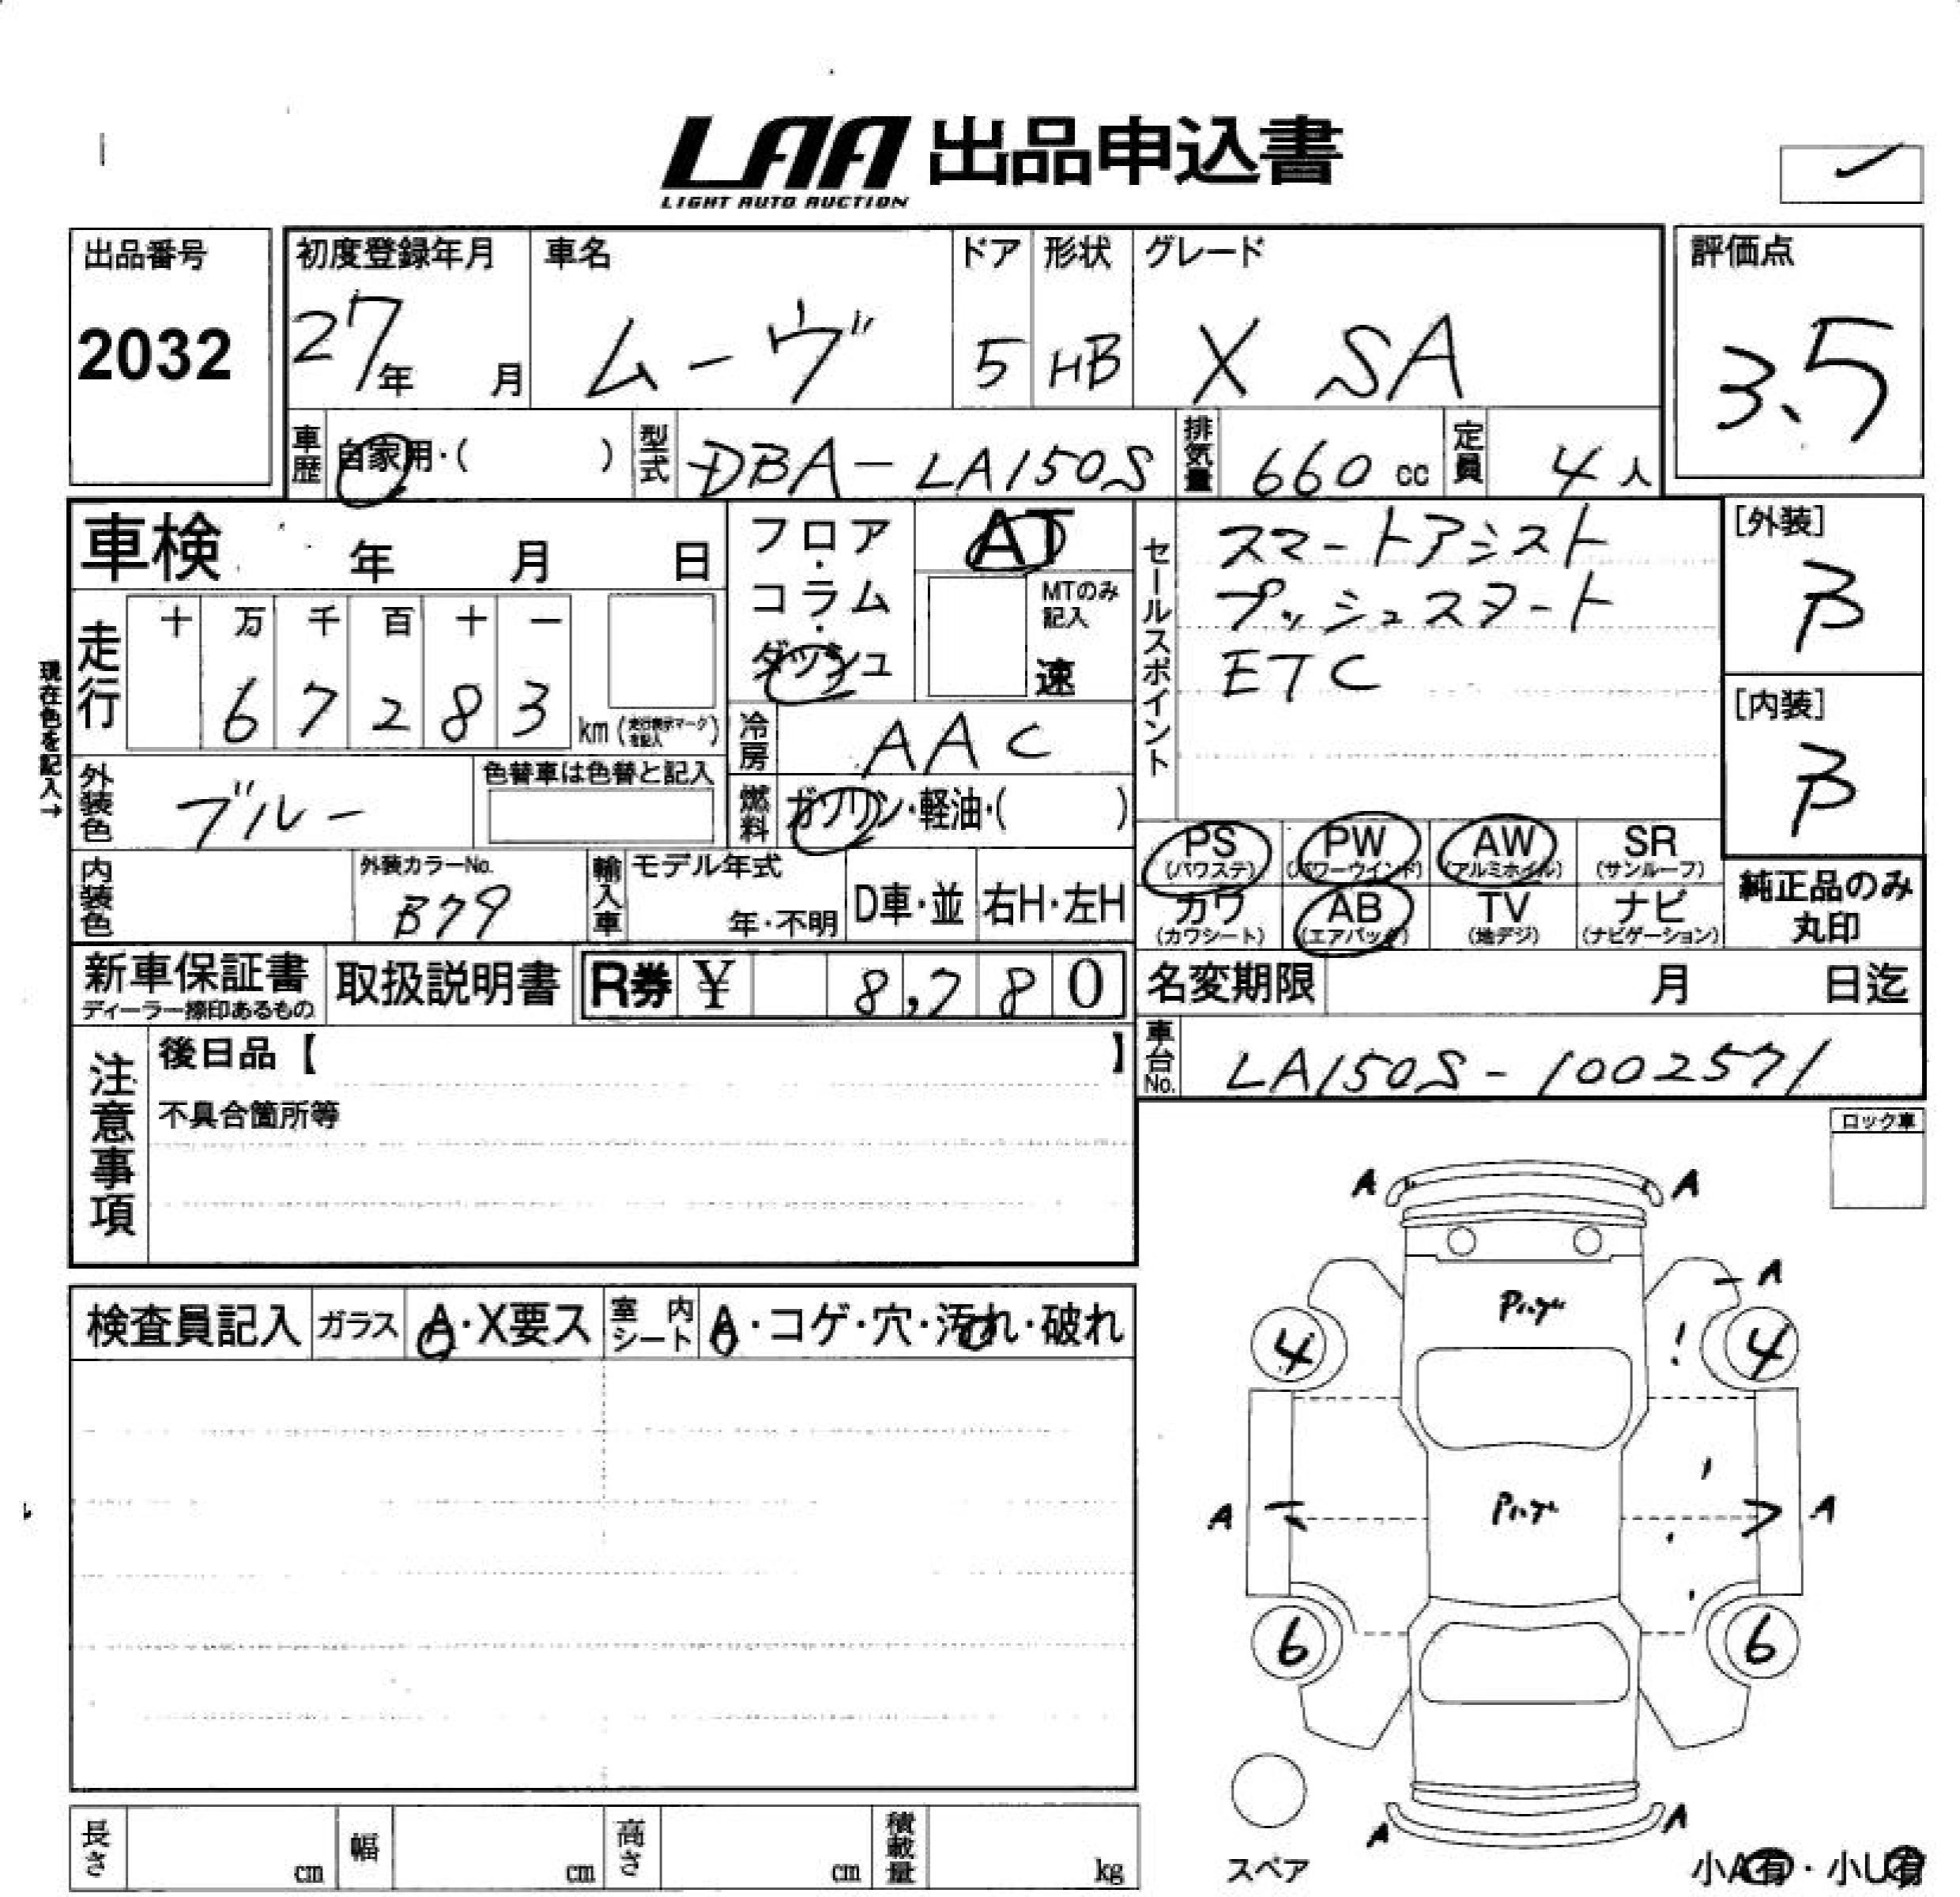 LAA 出品申込書
LIGHT AUTO AUCTION
出品番号
2032
初度登録年月
27年 月
車名
ムーヴ
ドア
5
形状
HB
グレード
X SA
評価点
3.5
車歴 自家用・( )
型式 DBA-LA150S
排気量 660 cc
定員 4人
車検 年 月 日
走行
十 万 千 百 十 一
6 7 2 8 3 km (走行表示マークを記入)
現在色を記入→
フロア・コラム・ダッシュ
AT
MTのみ記入
速
冷房 AAC
燃料 ガソリン・軽油・( )
セールスポイント
スマートアシスト
プッシュスタート
ETC
[外装]
B
[内装]
B
外装色 ブルー
色替車は色替と記入
内装色
外装カラーNo.
B79
輸入車 モデル年式
年・不明
D車・並
右H・左H
PS (パワステ)
PW (パワーウインド)
AW (アルミホイル)
SR (サンルーフ)
カワ (カワシート)
AB (エアバック)
TV (地デジ)
ナビ (ナビゲーション)
純正品のみ
丸印
新車保証書
ディーラー捺印あるもの
取扱説明書
R券 ¥ 8,780
名変期限 月 日迄
車台No. LA150S-1002571
注意事項
後日品【 】
不具合箇所等
ロック車
検査員記入 ガラス A・X要ス 室内シート A・コゲ・穴・汚れ・破れ
A A
A
4 4
A A
6 6
A A
スペア
小A有・小U有
長さ cm 幅 cm 高さ cm 積載量 kg